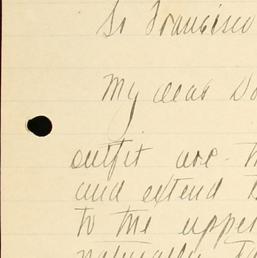 So Francisco
My dear Do
outfit are th
and extend t
to the upper
naturally ta